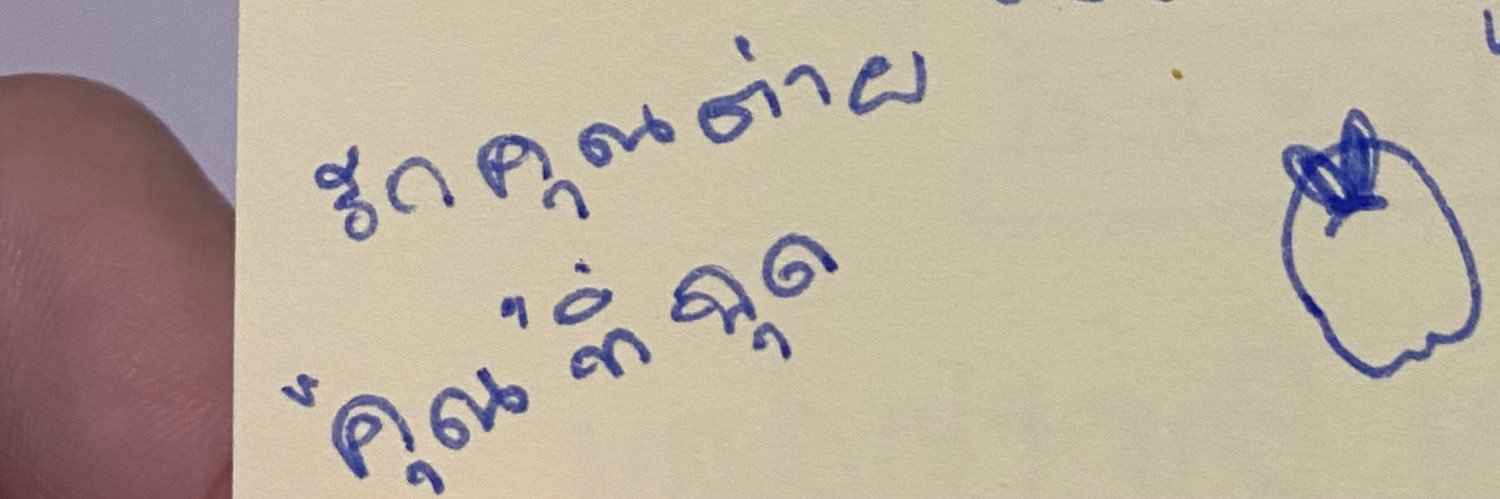 รักคุณต่าย
"คุณ"ที่สุด